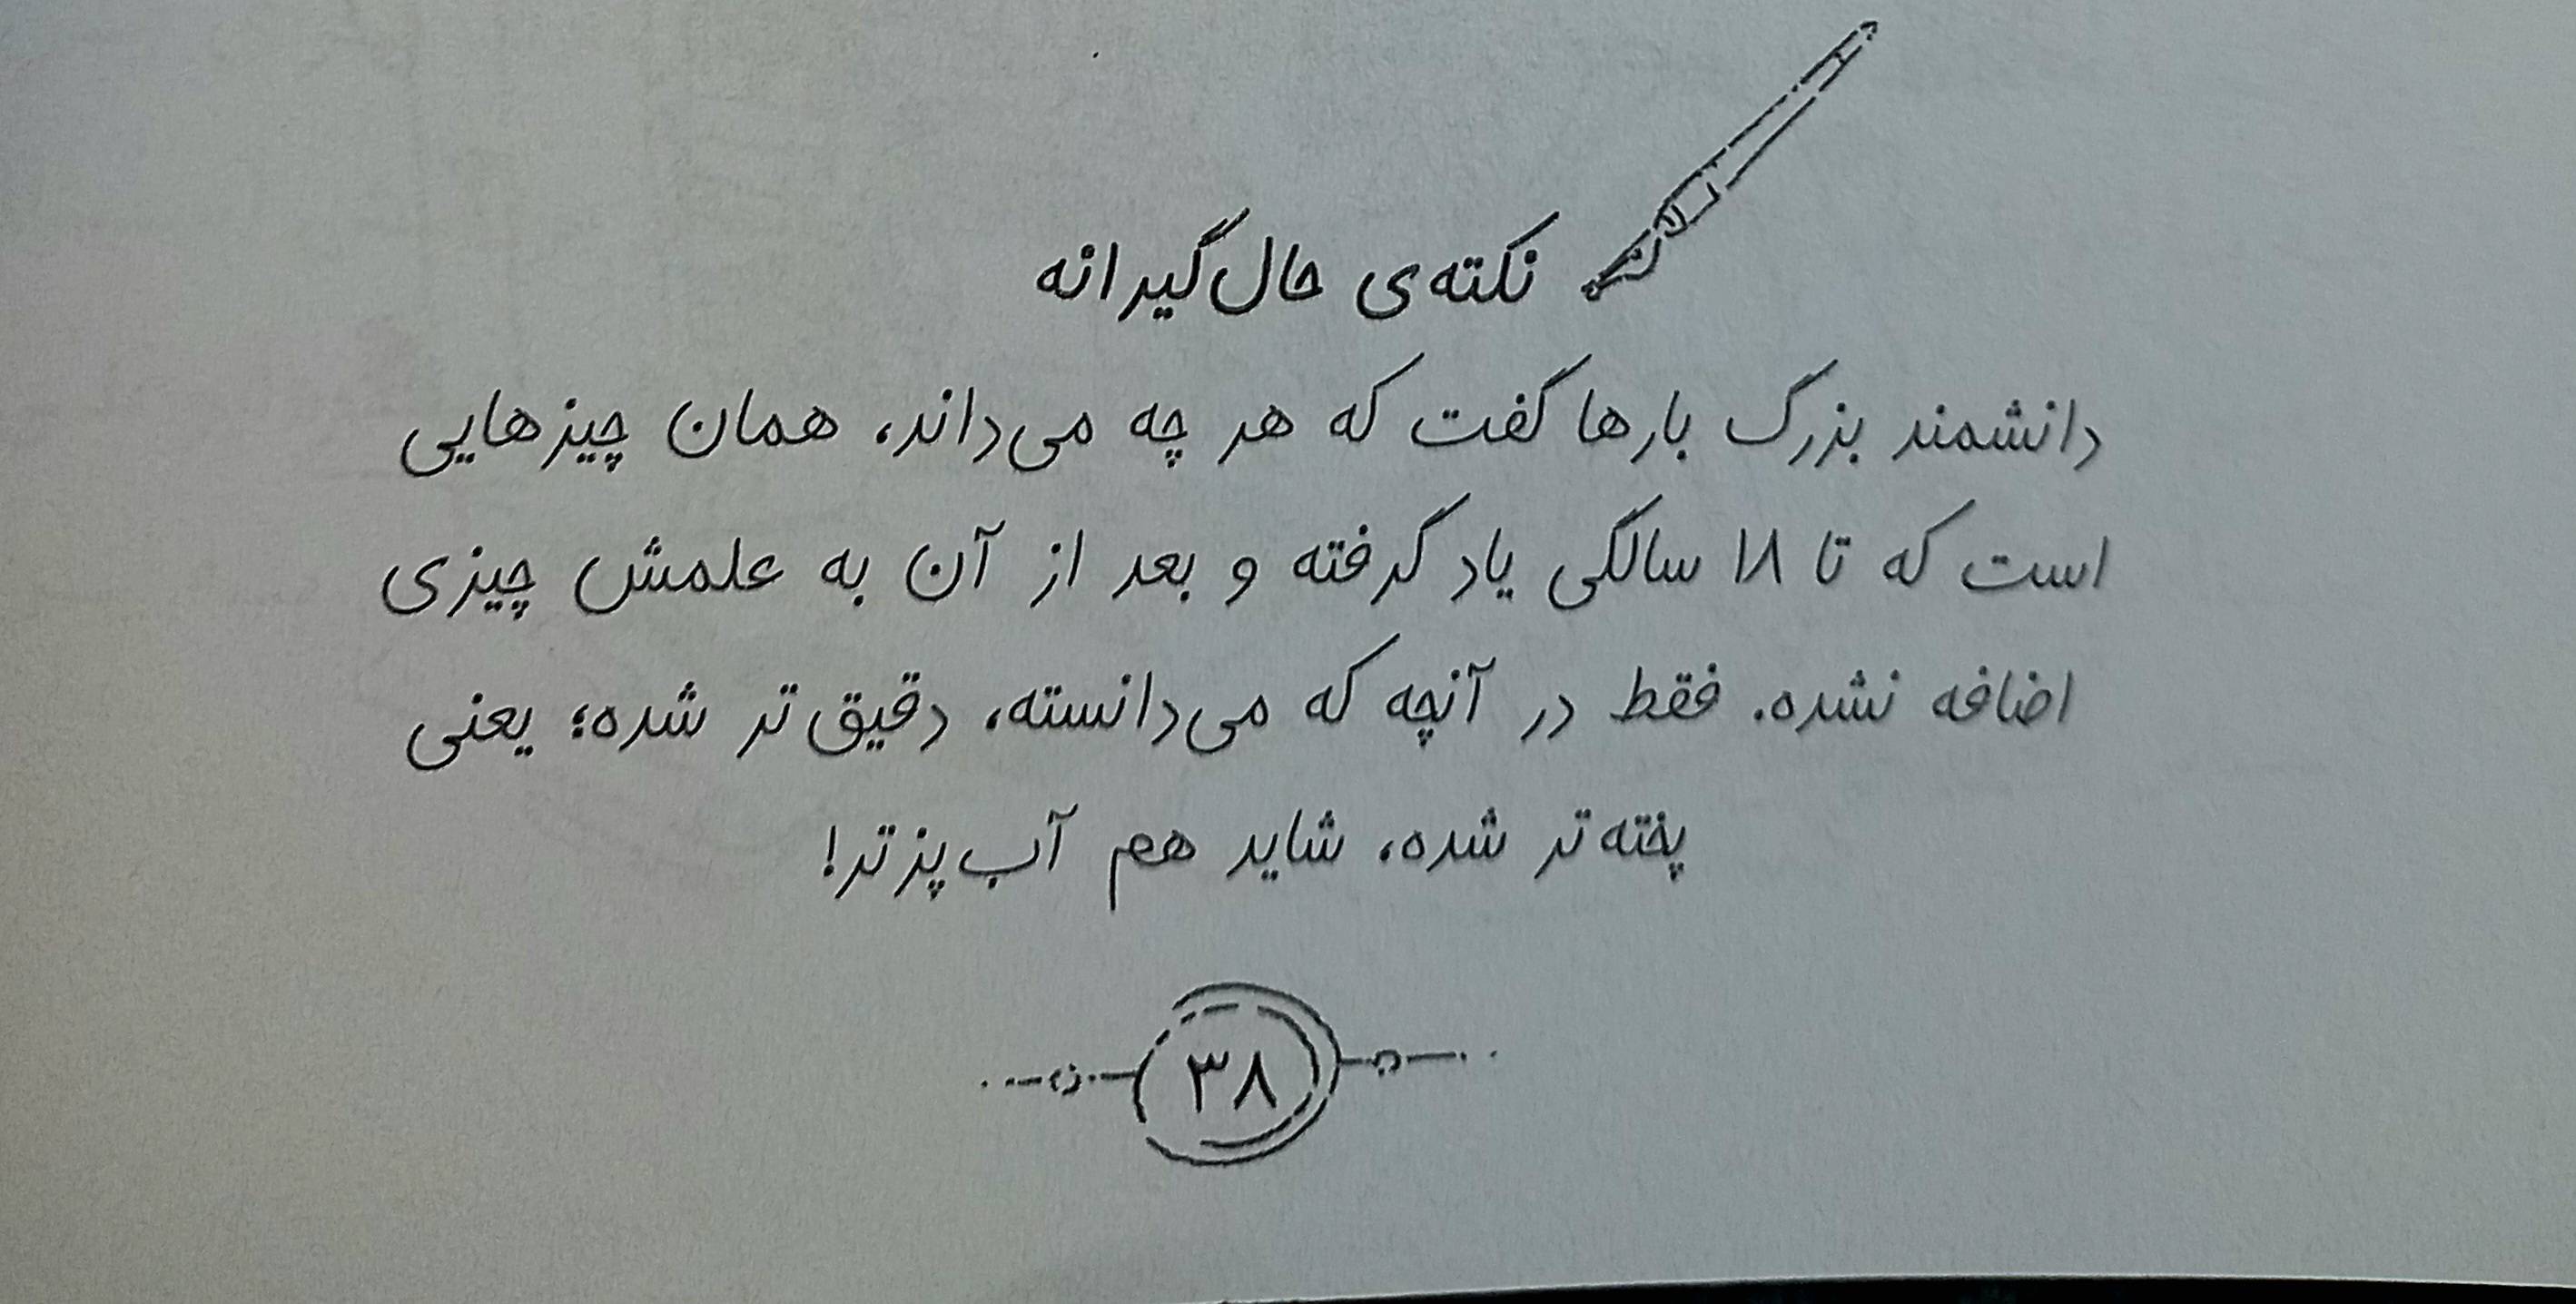 نکته‌ی حال‌گیرانه
دانشمند بزرگ بارها گفت که هر چه می‌داند، همان چیزهایی
است که تا ۱۸ سالگی یاد گرفته و بعد از آن به علمش چیزی
اضافه نشده. فقط در آنچه که می‌دانسته، دقیق‌تر شده؛ یعنی
پخته‌تر شده، شاید هم آب‌پزتر!
۳۸